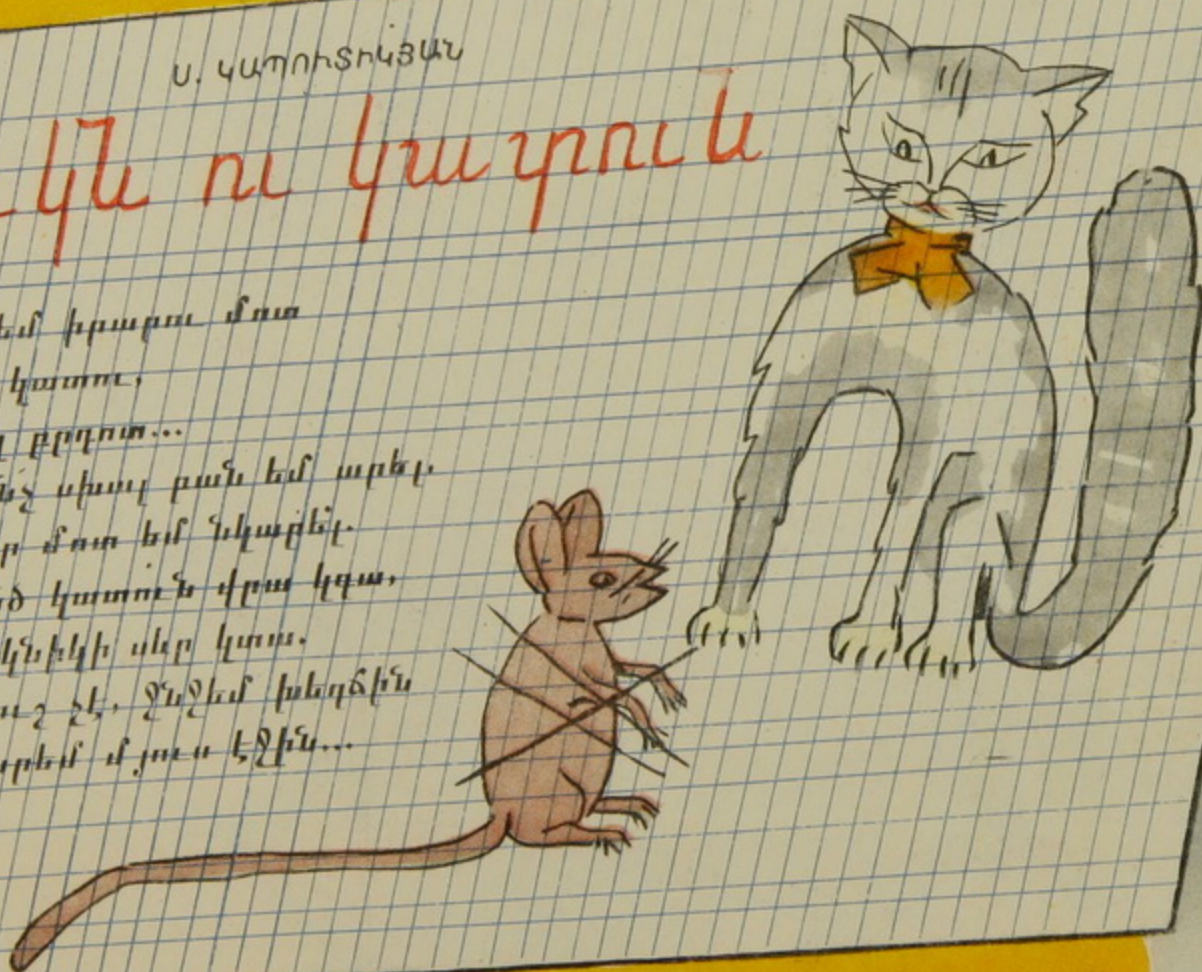 Ս. ԿԱՊՈՒՏԻԿՅԱՆ
ու կատուն
եմ իրարու մոտ
կատու,
բրդոտ...
սխալ բան եմ արել.
մոտ եմ նկարել.
կատուն վրա կգա,
սեր կտա.
չէ, ջնջեմ խեղճին
մյուս էջին...